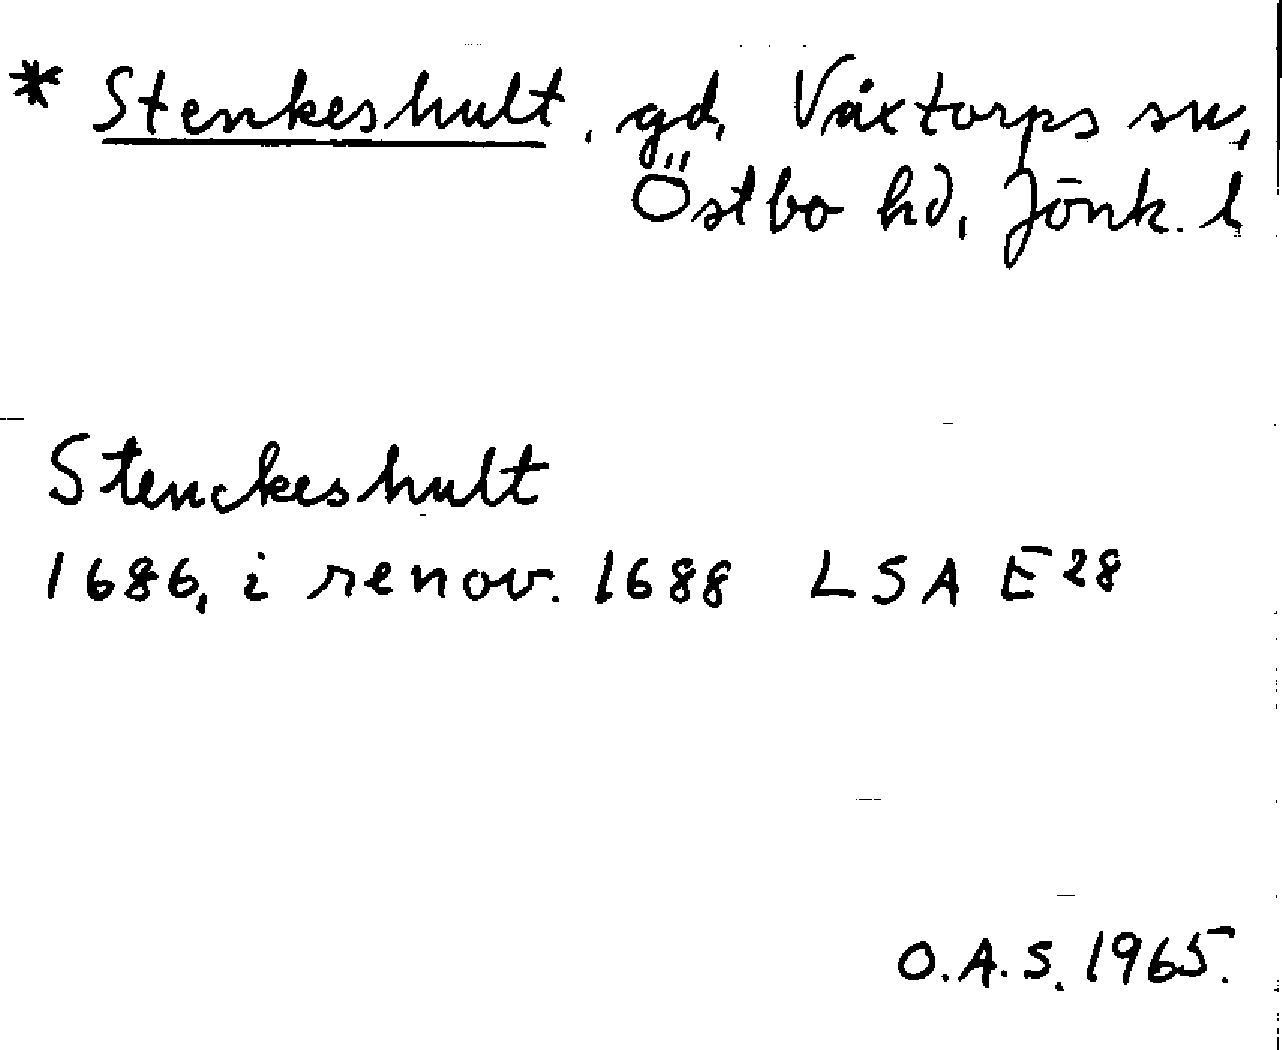 * Stenkeshult, gd, Våxtorps sn,
Östbo hd, Jönk. l
Stenckeshult
1686, i renov. 1688 LSA E28
O.A.S. 1965.